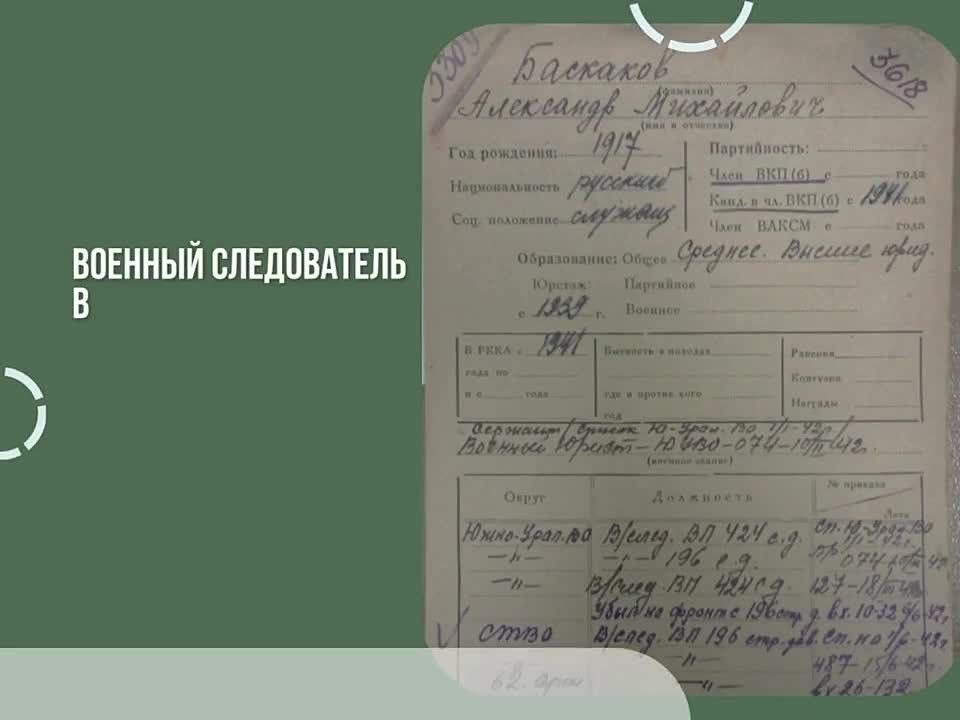 ВОЕННЫЙ СЛЕДОВАТЕЛЬ
В
3309
3618
Баскаков
(фамилия)
Александр Михайлович
(имя и отчество)
Год рождения: 1917
Национальность русский
Соц. положение служащ
Партийность:
Член ВКП(б) с года
Канд. в чл. ВКП(б) с 1941 года
Член ВЛКСМ с года
Образование: Общее Среднее. Высшее юрид.
Юрстаж: Партийное
с 1939 г. Военное
В РККА с 1941
года по
и с года
Бытность в походах
где и против кого
год
Ранения
Контузия
Награды
Сержант (список Ю-Урал. ВО 1/I-42г.
Военный Юрист - ЮУВО-074-10/II 42г.
(военное звание)
Округ Должность № приказа
Дата
Южно-Урал. ВО В/след. ВП 424 с.д. Сп. Ю-Урал. ВО
1/I-42г.
-"- -"- 196 с.д. 074-10/II-42г
-"- В/след. ВП 424 с.д. 127-18/III-42г
Убыл на фронт с 196 стр. д. вх. 10-32 9/6-42г
СТВО В/след. ВП 196 стр. див. Сп. на 1/6-42г
-"- 487-15/6-42г
62. арм -"- вх 26-132